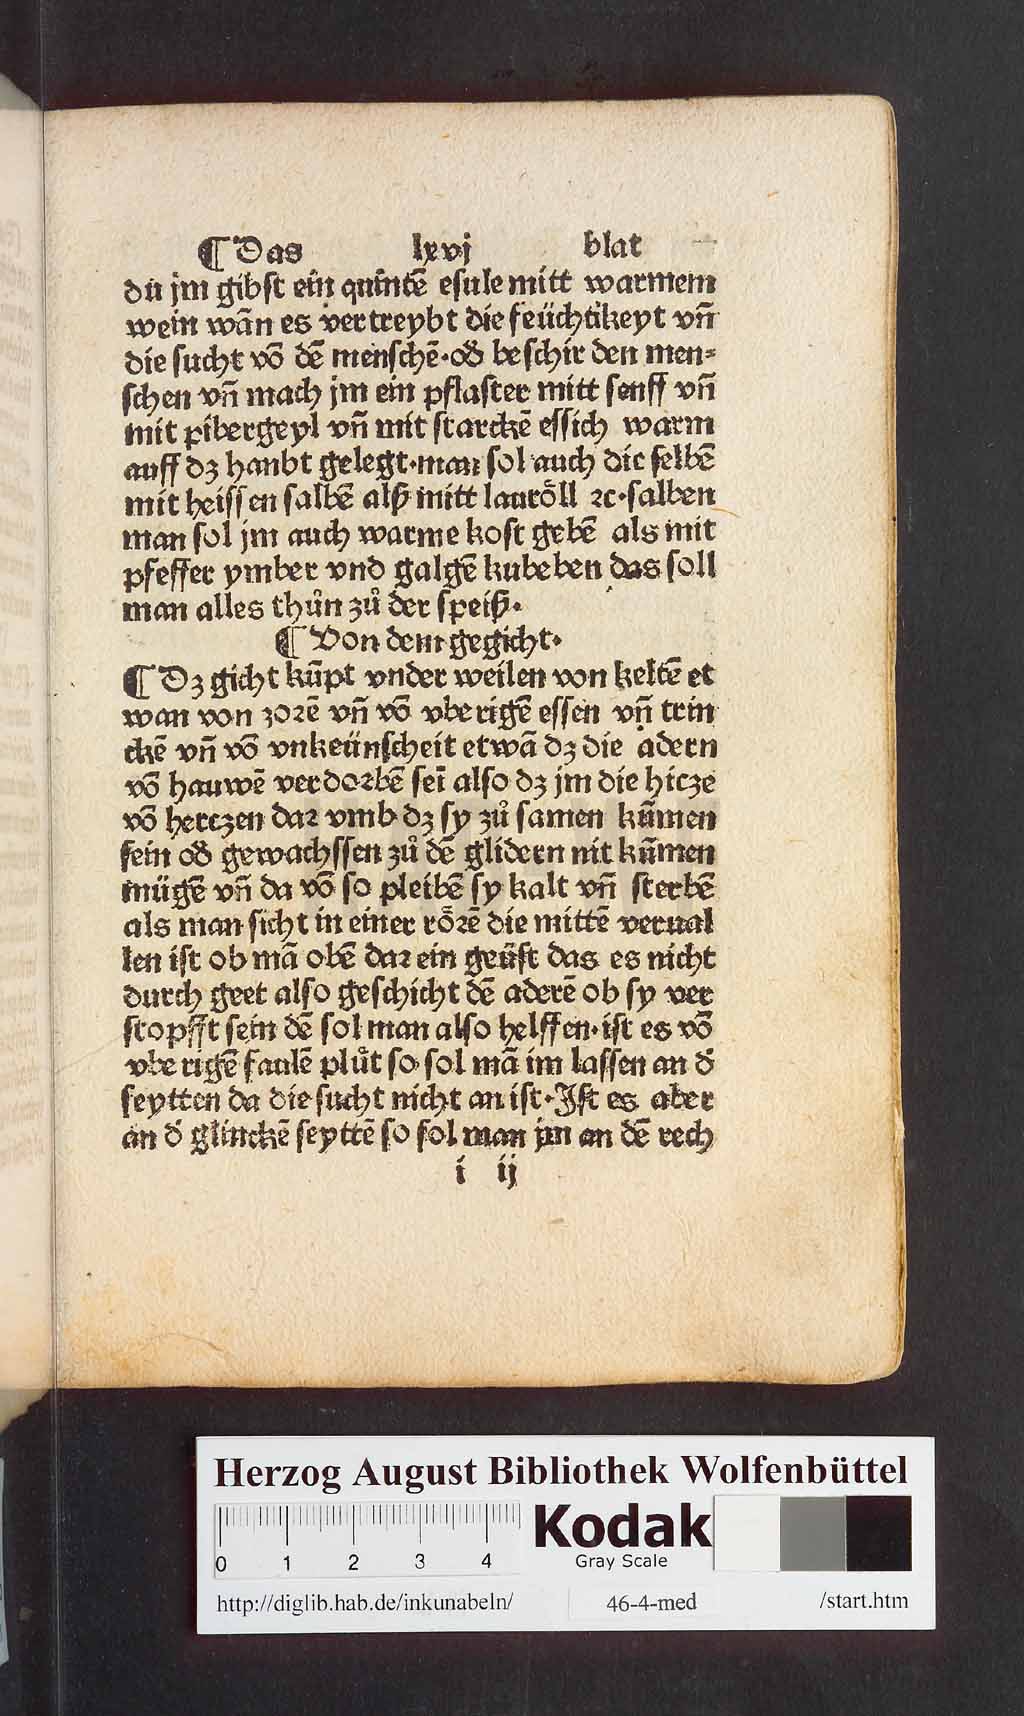 ¶ Das lxvj blat
du jm gibst ein quintē esule mitt warmem
wein wān es vertreybt die feüchtikeyt vñ
die sucht vō dē menschē · ođ beschir den men⸗
schen vñ mach jm ein pflaster mitt senff vñ
mit pibergeyl vñ mit starckē essich warm
auff dz haubt gelegt · man sol auch die selbē
mit heissen salbē alß mitt lauröll ⁊c · salben
man sol jm auch warme kost gebē als mit
pfeffer ymber vnd galgē kubeben das soll
man alles thůn zů der speiß ·
¶ Von dem gegicht ·
¶ Dz gicht kūpt vnder weilen von keltē et
wan von zorē vñ vō vberigē essen vñ trin
ckē vñ vō vnkeünscheit etwā dz die adern
vō hauwē verdorbē sei also dz jm die hicze
vō herczen dar vmb dz sy zů samen kūmen
sein ođ gewachssen zů dē glidern nit kūmen
mügē vñ da vō so pleibē sy kalt vñ sterbē
als man sicht in einer rörē die mittē verual
len ist ob mā obē dar ein geüst das es nicht
durch geet also geschicht dē aderē ob sy ver
stopfft sein dē sol man also helffen · ist es vō
vberigē faulē plůt so sol mā im lassen an đ
seytten da die sucht nicht an ist · Ist es aber
an đ glinckē seyttē so sol man jm an dē rech
i ij
Herzog August Bibliothek Wolfenbüttel
0 1 2 3 4
Kodak
Gray Scale
http://diglib.hab.de/inkunabeln/ 46-4-med /start.htm